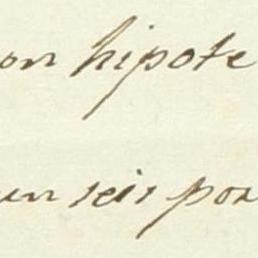 on hipote
un seis por